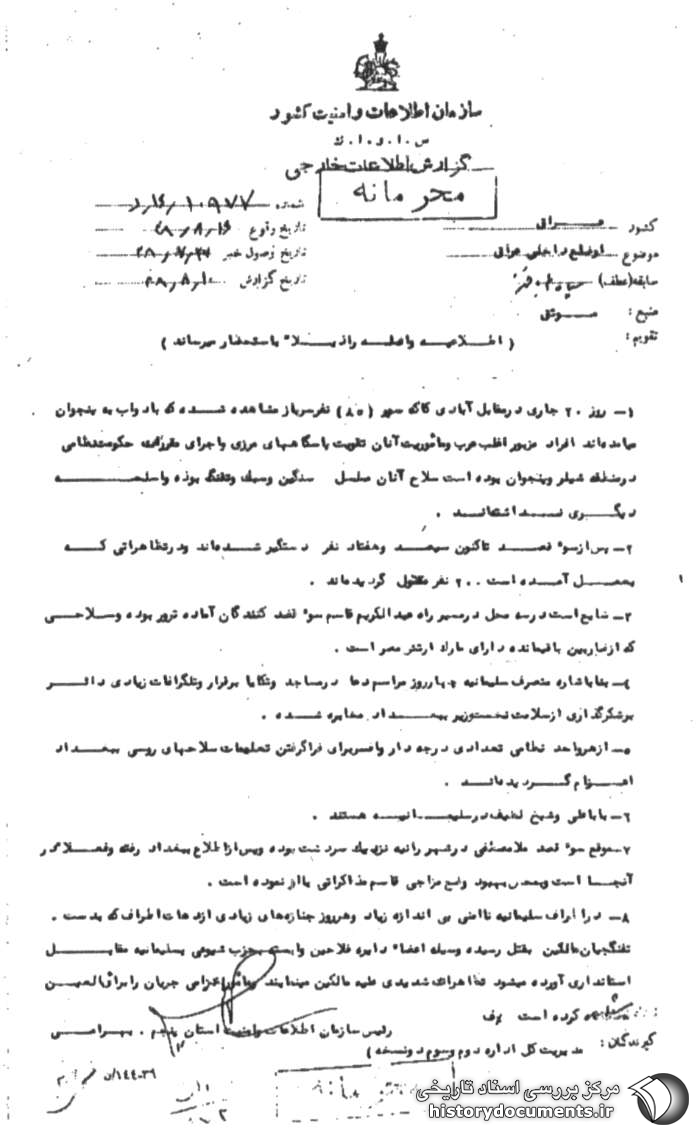 سازمان اطلاعات و امنیت کشور
س . ا . و . ا . ك
گزارش اطلاعات خارجی
محرمانه
شماره ۱۰۹۷۷
کشور عراق
تاریخ وقوع
موضوع اوضاع داخلی عراق
تاریخ وصول خبر
سابقه (عطف)
تاریخ گزارش
منبع : موثق
تقویم :
( اطلاعیه واصله را ذیلا" باستحضار میرساند )
۱- روز ۲۰ جاری در مقابل آبادی کاکه سور (۸۰) نفر سرباز مشاهده شده که با دواب به پنجوان
میآمده‌اند افراد مزبور اغلب عرب و مأموریت آنان تقویت پاسگاههای مرزی و اجرای مقررات حکومت نظامی
در منطقه شیلر و پنجوان بوده است سلاح آنان مسلسل سنگین و سبك و تفنگ بوده و اسلحه
دیگری نداشتند .
۲- پس از سوء قصد تاکنون سیصد و هفتاد نفر دستگیر شده‌اند و در تظاهراتی که
بعمل آمده است ۲۰۰ نفر مقتول گردیده‌اند .
۳- شایع است در سه محل در مسیر راه عبدالکریم قاسم سوء قصد کنندگان آماده ترور بوده و سلاحی
که از ضاربین باقیمانده دارای مارك ارتش مصر است .
۴- بنا باشاره متصرف سلیمانیه چهار روز مراسم دعا در مساجد و تکایا برقرار و تلگرافات زیادی دائر
بر شکرگذاری از سلامت نخست‌وزیر ببغداد مخابره شده .
۵- از هر واحد نظامی تعدادی درجه دار و افسر برای فرا گرفتن تعلیمات سلاحهای روسی ببغداد
اعزام گردیده‌اند .
۶- باباعلی و شیخ لطیف در سلیمانیه هستند .
۷- موقع سوء قصد ملامصطفی در شهر رانیه نزدیك سردشت بوده و پس از اطلاع ببغداد رفته و فعلا در
آنجا است و بمحض بهبود وضع مزاجی قاسم مذاکراتی با او نموده است .
۸- در اطراف سلیمانیه ناامنی بی اندازه زیاد و هر روز جنازه‌های زیادی از دهات اطراف که بدست
تفنگچیان مالکین بقتل رسیده وسیله اعضاء دایره فلاحین وابسته بحزب شیوعی بسلیمانیه مقابل
استانداری آورده میشود تظاهرات شدیدی علیه مالکین مینمایند و مأمور اعزامی جریان را برأی‌العین
مشاهده کرده است
رئیس سازمان اطلاعات و امنیت استان پنجم . بهرامی
گیرندگان :
مدیریت کل اداره دوم و سوم دو نسخه )
محرمانه
مرکز بررسی اسناد تاریخی
historydocuments.ir